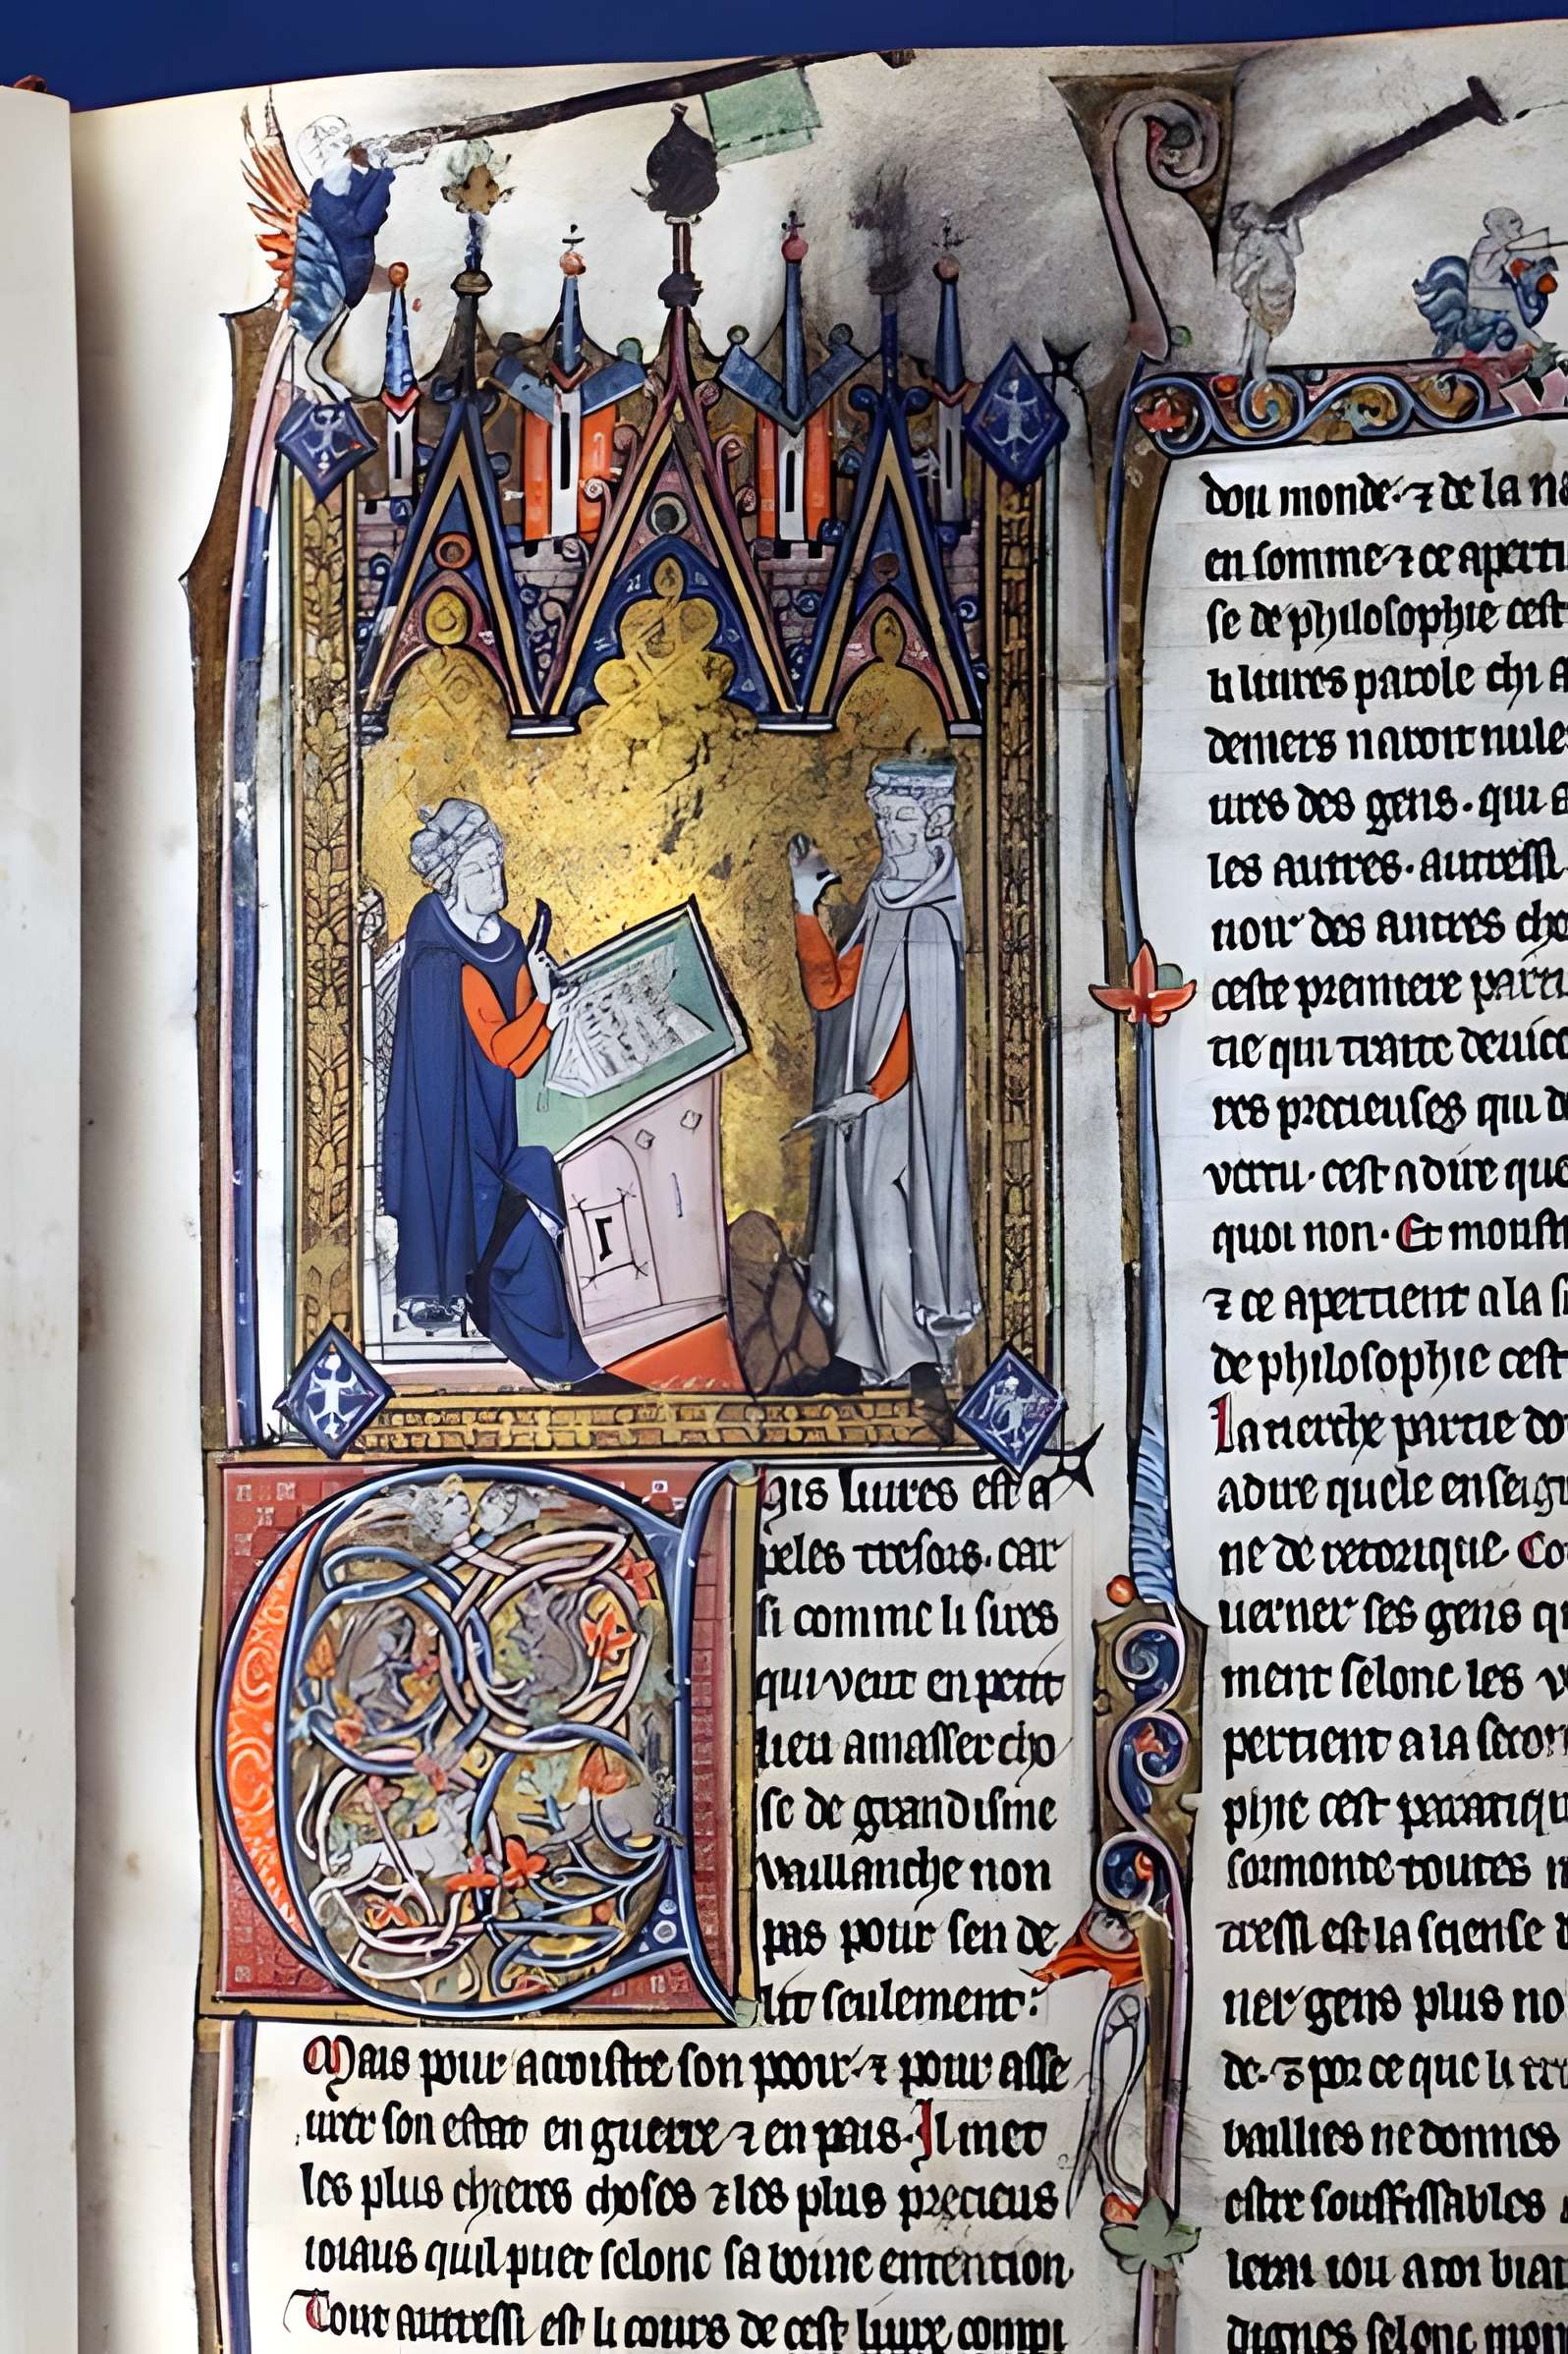 his liures est a
peles tresors. car
si comme li sires
qui veut en petit
lieu amasser cho
se de grandisme
vaillanche non
pas pour sen de
lit seulement.
Mais pour acroistre son pooir ⁊ pour asse
urer son estat en guerre ⁊ en pais. Il met
les plus chieres choses ⁊ les plus precieus
ioiaus quil puet selonc sa boine entention
Tout autressi est li cours de cest liure compi
dou monde. ⁊ de la na
en somme ⁊ ce aperti
se de philosophie cest
li liures parole chi a
deniers naroit nule
ures des gens. qui a
les autres. autressi
noir des autres cho
ceste premiere parti
tie qui traite de uice
res precieuses qui de
vertu. cest a dire que
quoi non. Et monstr
⁊ ce apertient a la s
de philosophie cest
La tierche partie do
a dire quele enseign
ne de retorique Co
uerner ses gens qu
ment selonc les v
pertient a la secon
phie cest pratiqu
sormonte toutes
tressi est la sciense d
ner gens plus no
de. ⁊ por ce que li tre
baillies ne donnes
estre souffissables
lerai iou a toi biau
dignes selonc mon